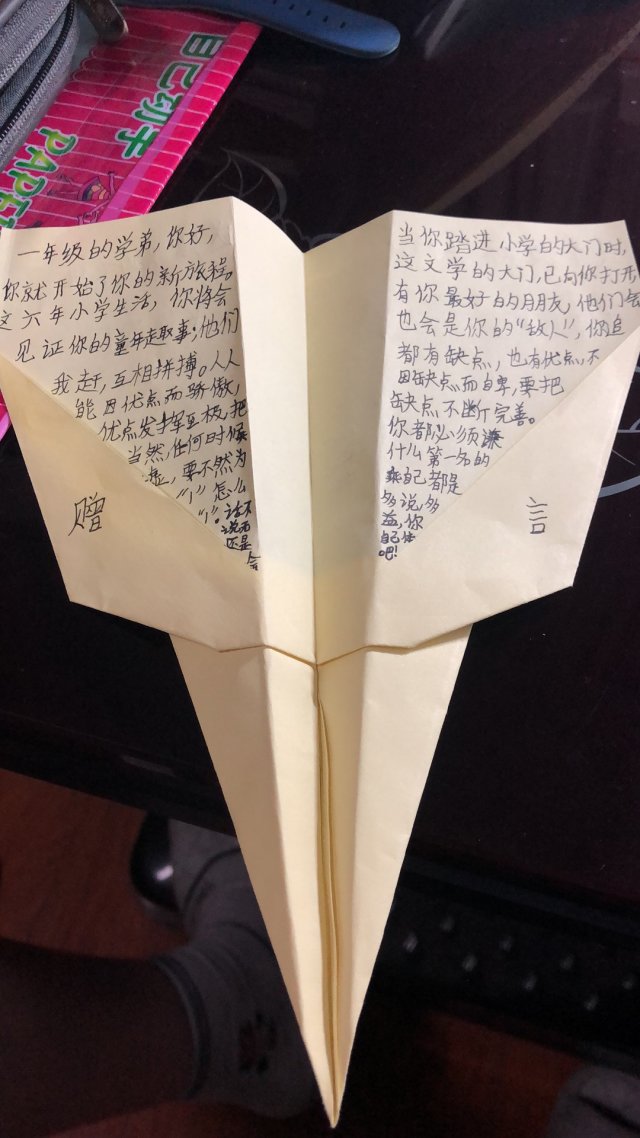 自己动手
PAPE
一年级的学弟,你好,当你踏进小学的大门时,
你就开始了你的新旅程。这文学的大门,已向你打开
这六年小学生活,你将会有你最好的朋友,他们会
见证你的童年趣事;他们也会是你的“敌人”,你追
我赶,互相拼搏。人人都有缺点,也有优点,不
能因优点而骄傲,因缺点而自卑,要把
优点发挥至极,把缺点不断完善。
当然,任何时候你都必须谦
虚,要不然为什么第一名的
“1”怎么乘自己都是
“1”。话不多说,多
说无益,你
还是自己体
会吧!
赠言